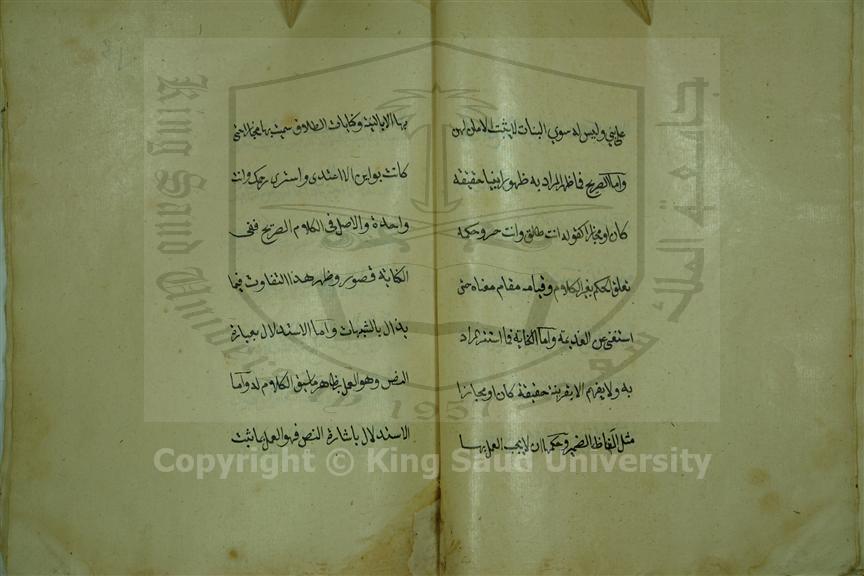 على بني وليس له سوي البنات لا يثبت الامان لهن
واما الصريح فما ظهر المراد به ظهورا بينا حقيقة
كان او مجازا كقوله انت طالق وانت حر وحكمه
تعلق الحكم بعين الكلام وقيامه مقام معناه حتى
استغنى عن العزيمة واما الكناية فما استتر المراد
به ولا يفهم الا بقرينة حقيقة كان او مجازا
مثل الفاظ الضمير وحكمها ان لا يجب العمل بها
بها الا بالنية وكنايات الطلاق سميت بها مجازا حتى
كانت بواين الا اعتدى واستبري رحمك وانت
واحدة والاصل في الكلام الصريح ففي
الكناية قصور وظهر هذا التفاوت فيما
يدرأ بالشبهات واما الاستدلال بعبارة
النص وهو العمل بظاهر ما سيق الكلام له واما
الاستدلال باشارة النص فهو العمل بما ثبت
King Saud University
جامعة الملك سعود
1957
Copyright © King Saud University